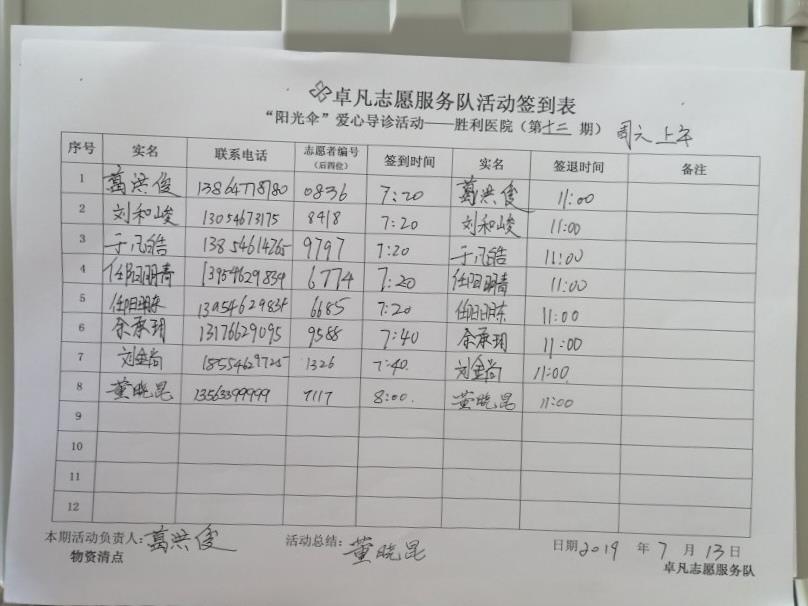 卓凡志愿服务队活动签到表
“阳光伞”爱心导诊活动——胜利医院（第十三 期） 周六上午
序号 实名 联系电话 志愿者编号（后四位） 签到时间 实名 签退时间 备注
1 葛洪俊 13864778780 0836 7:20 葛洪俊 11:00
2 刘和峻 13054673175 8418 7:20 刘和峻 11:00
3 于凡皓 13854614765 9797 7:20 于凡皓 11:00
4 任阳明青 13954629834 6774 7:20 任阳明青 11:00
5 任阳明东 13954629834 6685 7:20 任阳明东 11:00
6 余承玥 13176629095 9588 7:40 余承玥 11:00
7 刘金尚 18554629725 1326 7:40. 刘金尚 11:00.
8 董晓昆 13563399999 7117 8:00. 董晓昆 11:00
9
10
11
12
本期活动负责人:葛洪俊 活动总结: 董晓昆 日期2019 年 7 月 13 日
物资清点 卓凡志愿服务队